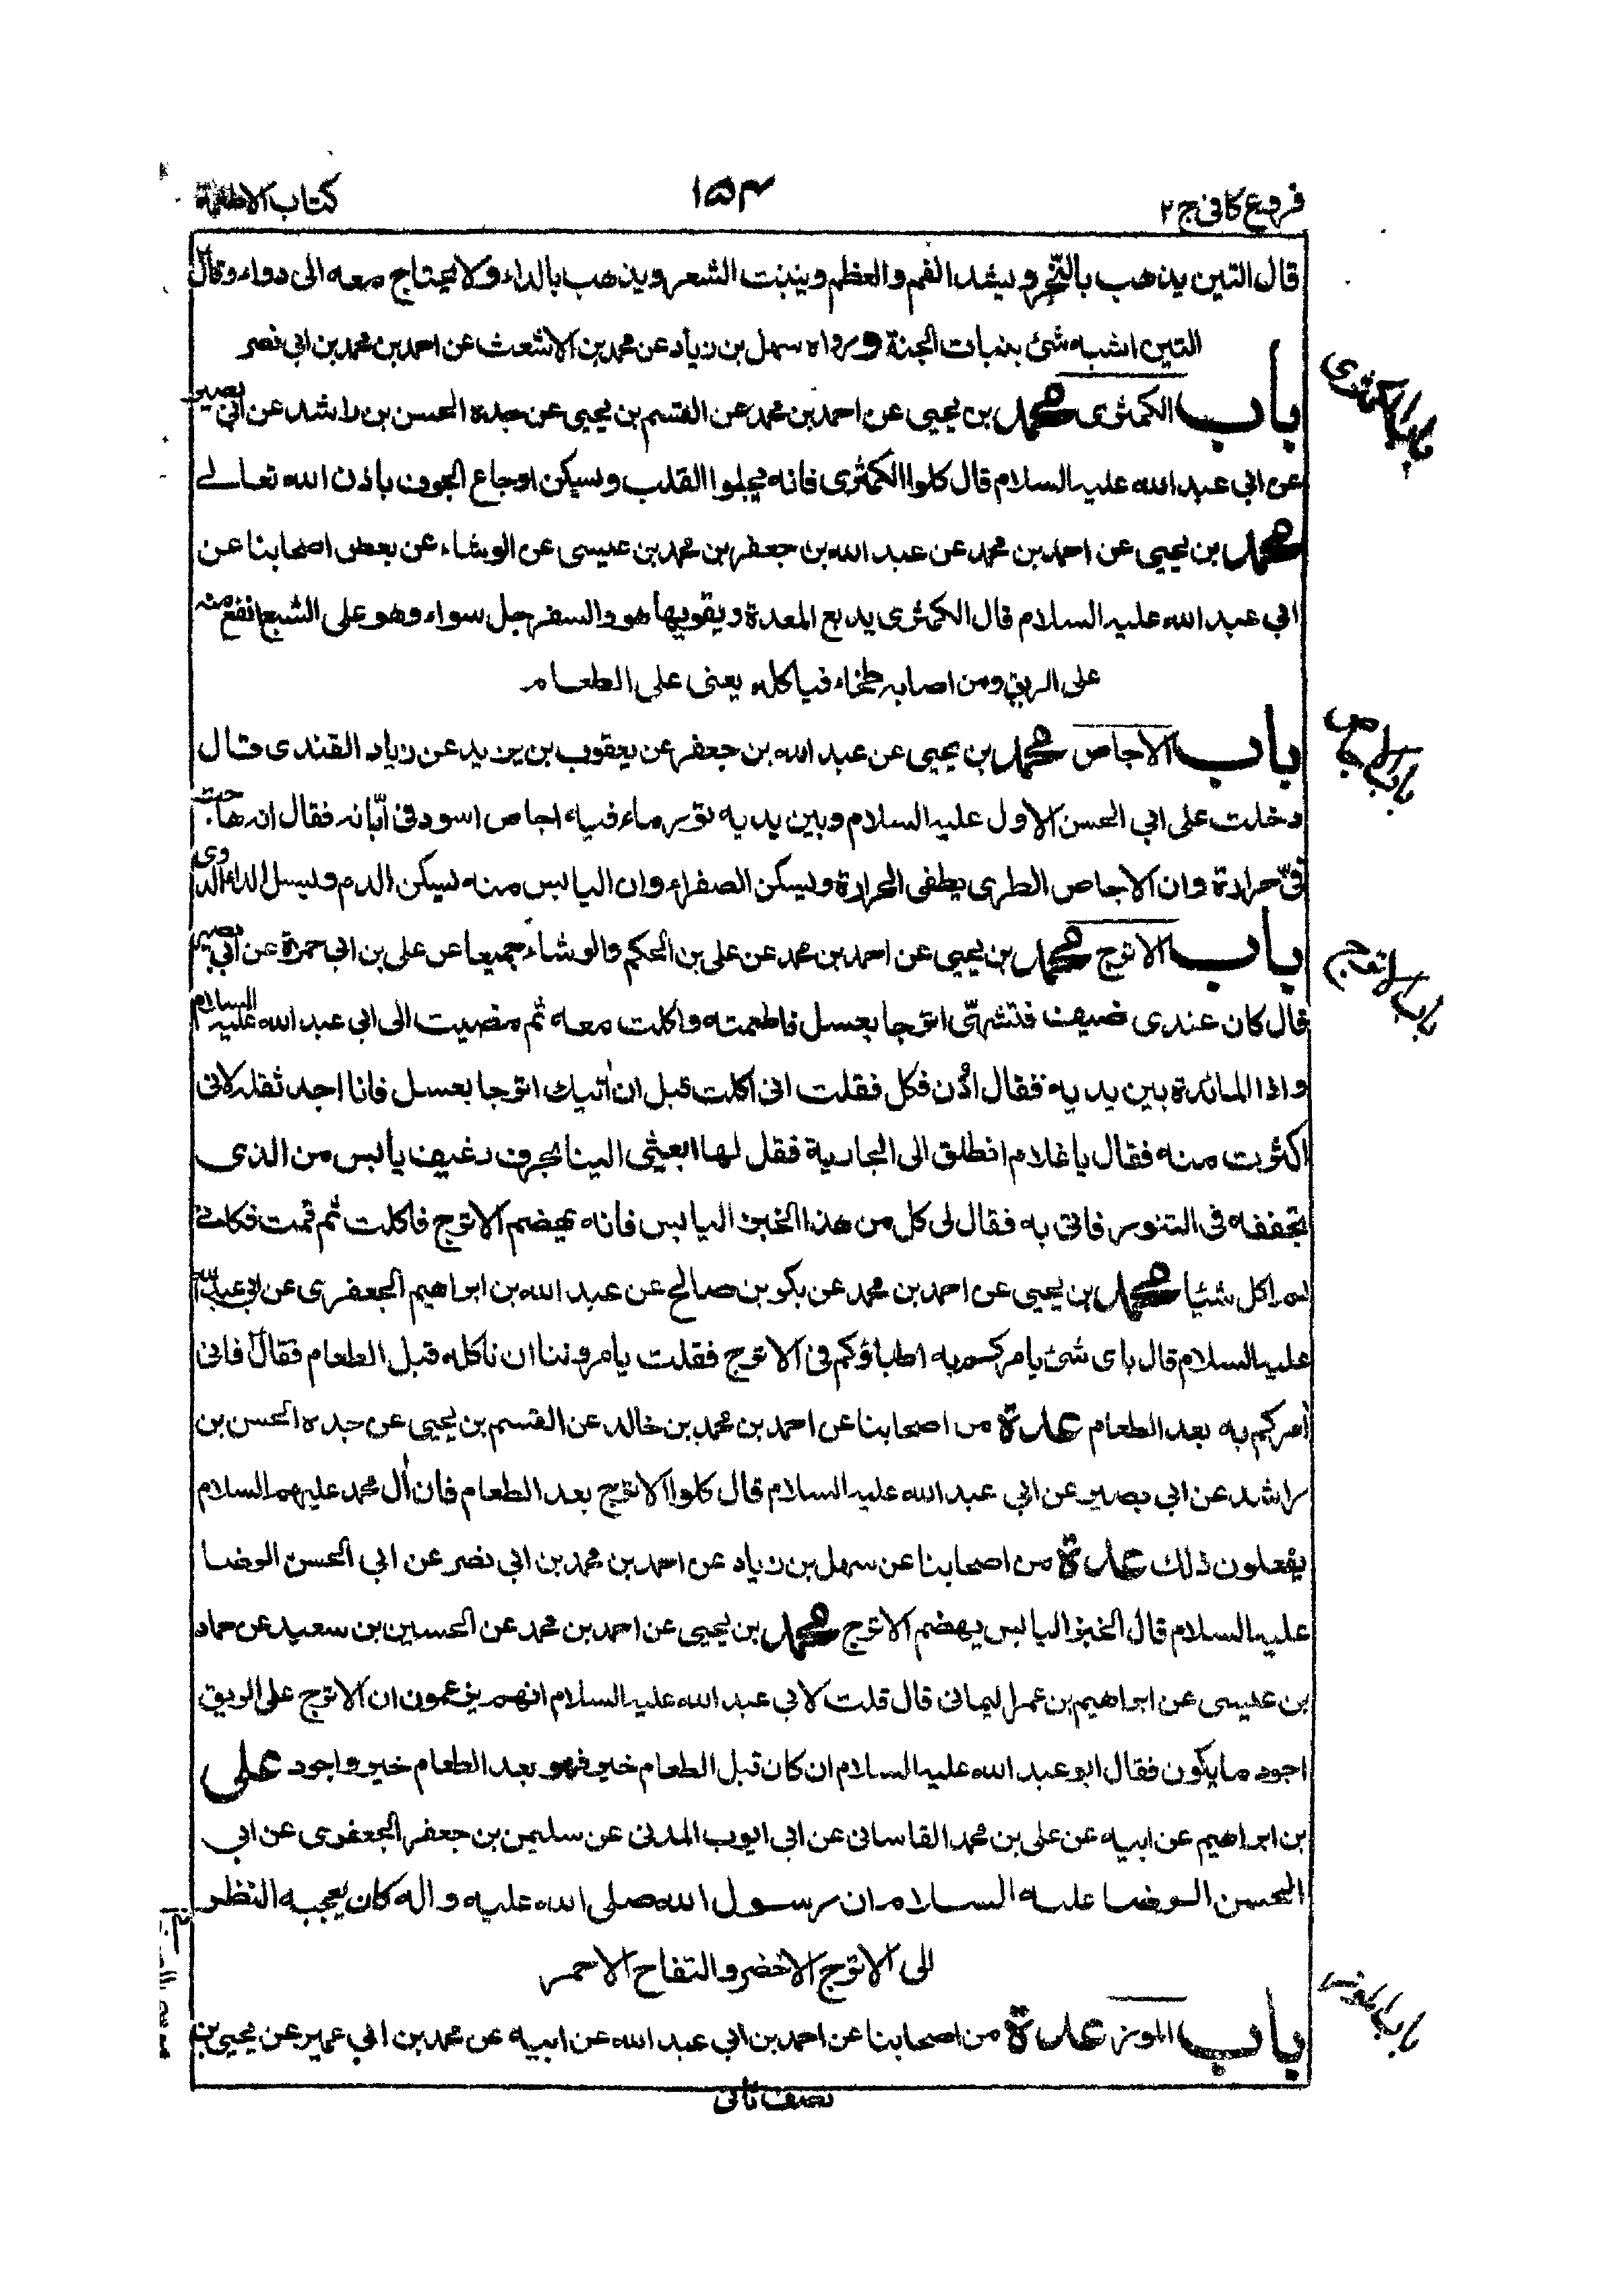 فروع كافى ج ٢
١٥٤
كتاب الاطعمة
قال التين يذهب بالبخر ويشد الفم والعظم وينبت الشعر ويذهب بالداء ولا يحتاج معه الى دواء وقال
التين اشبه شئ بنبات الجنة ورواه سهل بن زياد عن محمد بن الاشعث عن احمد بن محمد بن ابى نصر
باب الكمثرى
باب الكمثرى محمد بن يحيى عن احمد بن محمد عن القسم بن يحيى عن جده الحسن بن راشد عن ابى بصير
عن ابى عبد الله عليه السلام قال كلوا الكمثرى فانه يجلوا القلب ويسكن اوجاع الجوف باذن الله تعالى
محمد بن يحيى عن احمد بن محمد عن عبد الله بن جعفر بن محمد بن عيسى عن الوشاء عن بعض اصحابنا عن
ابى عبد الله عليه السلام قال الكمثرى يدبغ المعدة ويقويها هو والسفرجل سواء وهو على الشبع انفع منه
على الريق ومن اصابه طخاء فياكله يعنى على الطعام
باب الاجاص
باب الاجاص محمد بن يحيى عن عبد الله بن جعفر عن يعقوب بن يزيد عن زياد القندى قال
دخلت على ابى الحسن الاول عليه السلام وبين يديه تور ماء فيه اجاص اسود فى ابّانه فقال انه هاجت
فىّ حرارة وان الاجاص الطرى يطفى الحرارة ويسكن الصفراء وان اليابس منه يسكن الدم ويسل الداء الدوى
باب الاترج
باب الاترج محمد بن يحيى عن احمد بن محمد عن على بن الحكم والوشاء جميعا عن على بن ابى حمزة عن ابى بصير
قال كان عندى ضيف فتشهّى اترجا بعسل فاطعمته واكلت معه ثم مضيت الى ابى عبد الله عليه السلام
واذا المائدة بين يديه فقال اُدْن فكل فقلت انى اكلت قبل ان اٰتيك اترجا بعسل فانا اجد ثقله لانى
اكثرت منه فقال يا غلام انطلق الى الجارية فقل لها ابعثى الينا بحرف رغيف يابس من الذى
تجففه فى التنور فاتى به فقال لى كل من هذا الخبز اليابس فانه يهضم الاترج فاكلت ثم قمت فكانى
لم اكل شيئا محمد بن يحيى عن احمد بن محمد عن بكر بن صالح عن عبد الله بن ابراهيم الجعفرى عن ابى عبد الله
عليه السلام قال باى شئ يامركم به اطباؤكم فى الاترج فقلت يامروننا ان ناكله قبل الطعام فقال فانى
اٰمركم به بعد الطعام عدة من اصحابنا عن احمد بن محمد بن خالد عن القسم بن يحيى عن جده الحسن بن
راشد عن ابى بصير عن ابى عبد الله عليه السلام قال كلوا الاترج بعد الطعام فان اٰل محمد عليهم السلام
يفعلون ذلك عدة من اصحابنا عن سهل بن زياد عن احمد بن محمد بن ابى نصر عن ابى الحسن الرضا
عليه السلام قال الخبز اليابس يهضم الاترج محمد بن يحيى عن احمد بن محمد عن الحسين بن سعيد عن حماد
بن عيسى عن ابراهيم بن عمر اليمانى قال قلت لابى عبد الله عليه السلام انهم يزعمون ان الاترج على الريق
اجود ما يكون فقال ابو عبد الله عليه السلام ان كان قبل الطعام خير فهو بعد الطعام خير واجود على
بن ابراهيم عن ابيه عن على بن محمد القاسانى عن ابى ايوب المدنى عن سليمن بن جعفر الجعفرى عن ابى
الحسن الرضا عليه السلام ان رسول الله صلى الله عليه واله كان يعجبه النظر
الى الاترج الاخضر والتفاح الاحمر
باب الموز
باب الموز عدة من اصحابنا عن احمد بن ابى عبد الله عن ابيه عن محمد بن ابى عمير عن يحيى بن
نصف ثانى